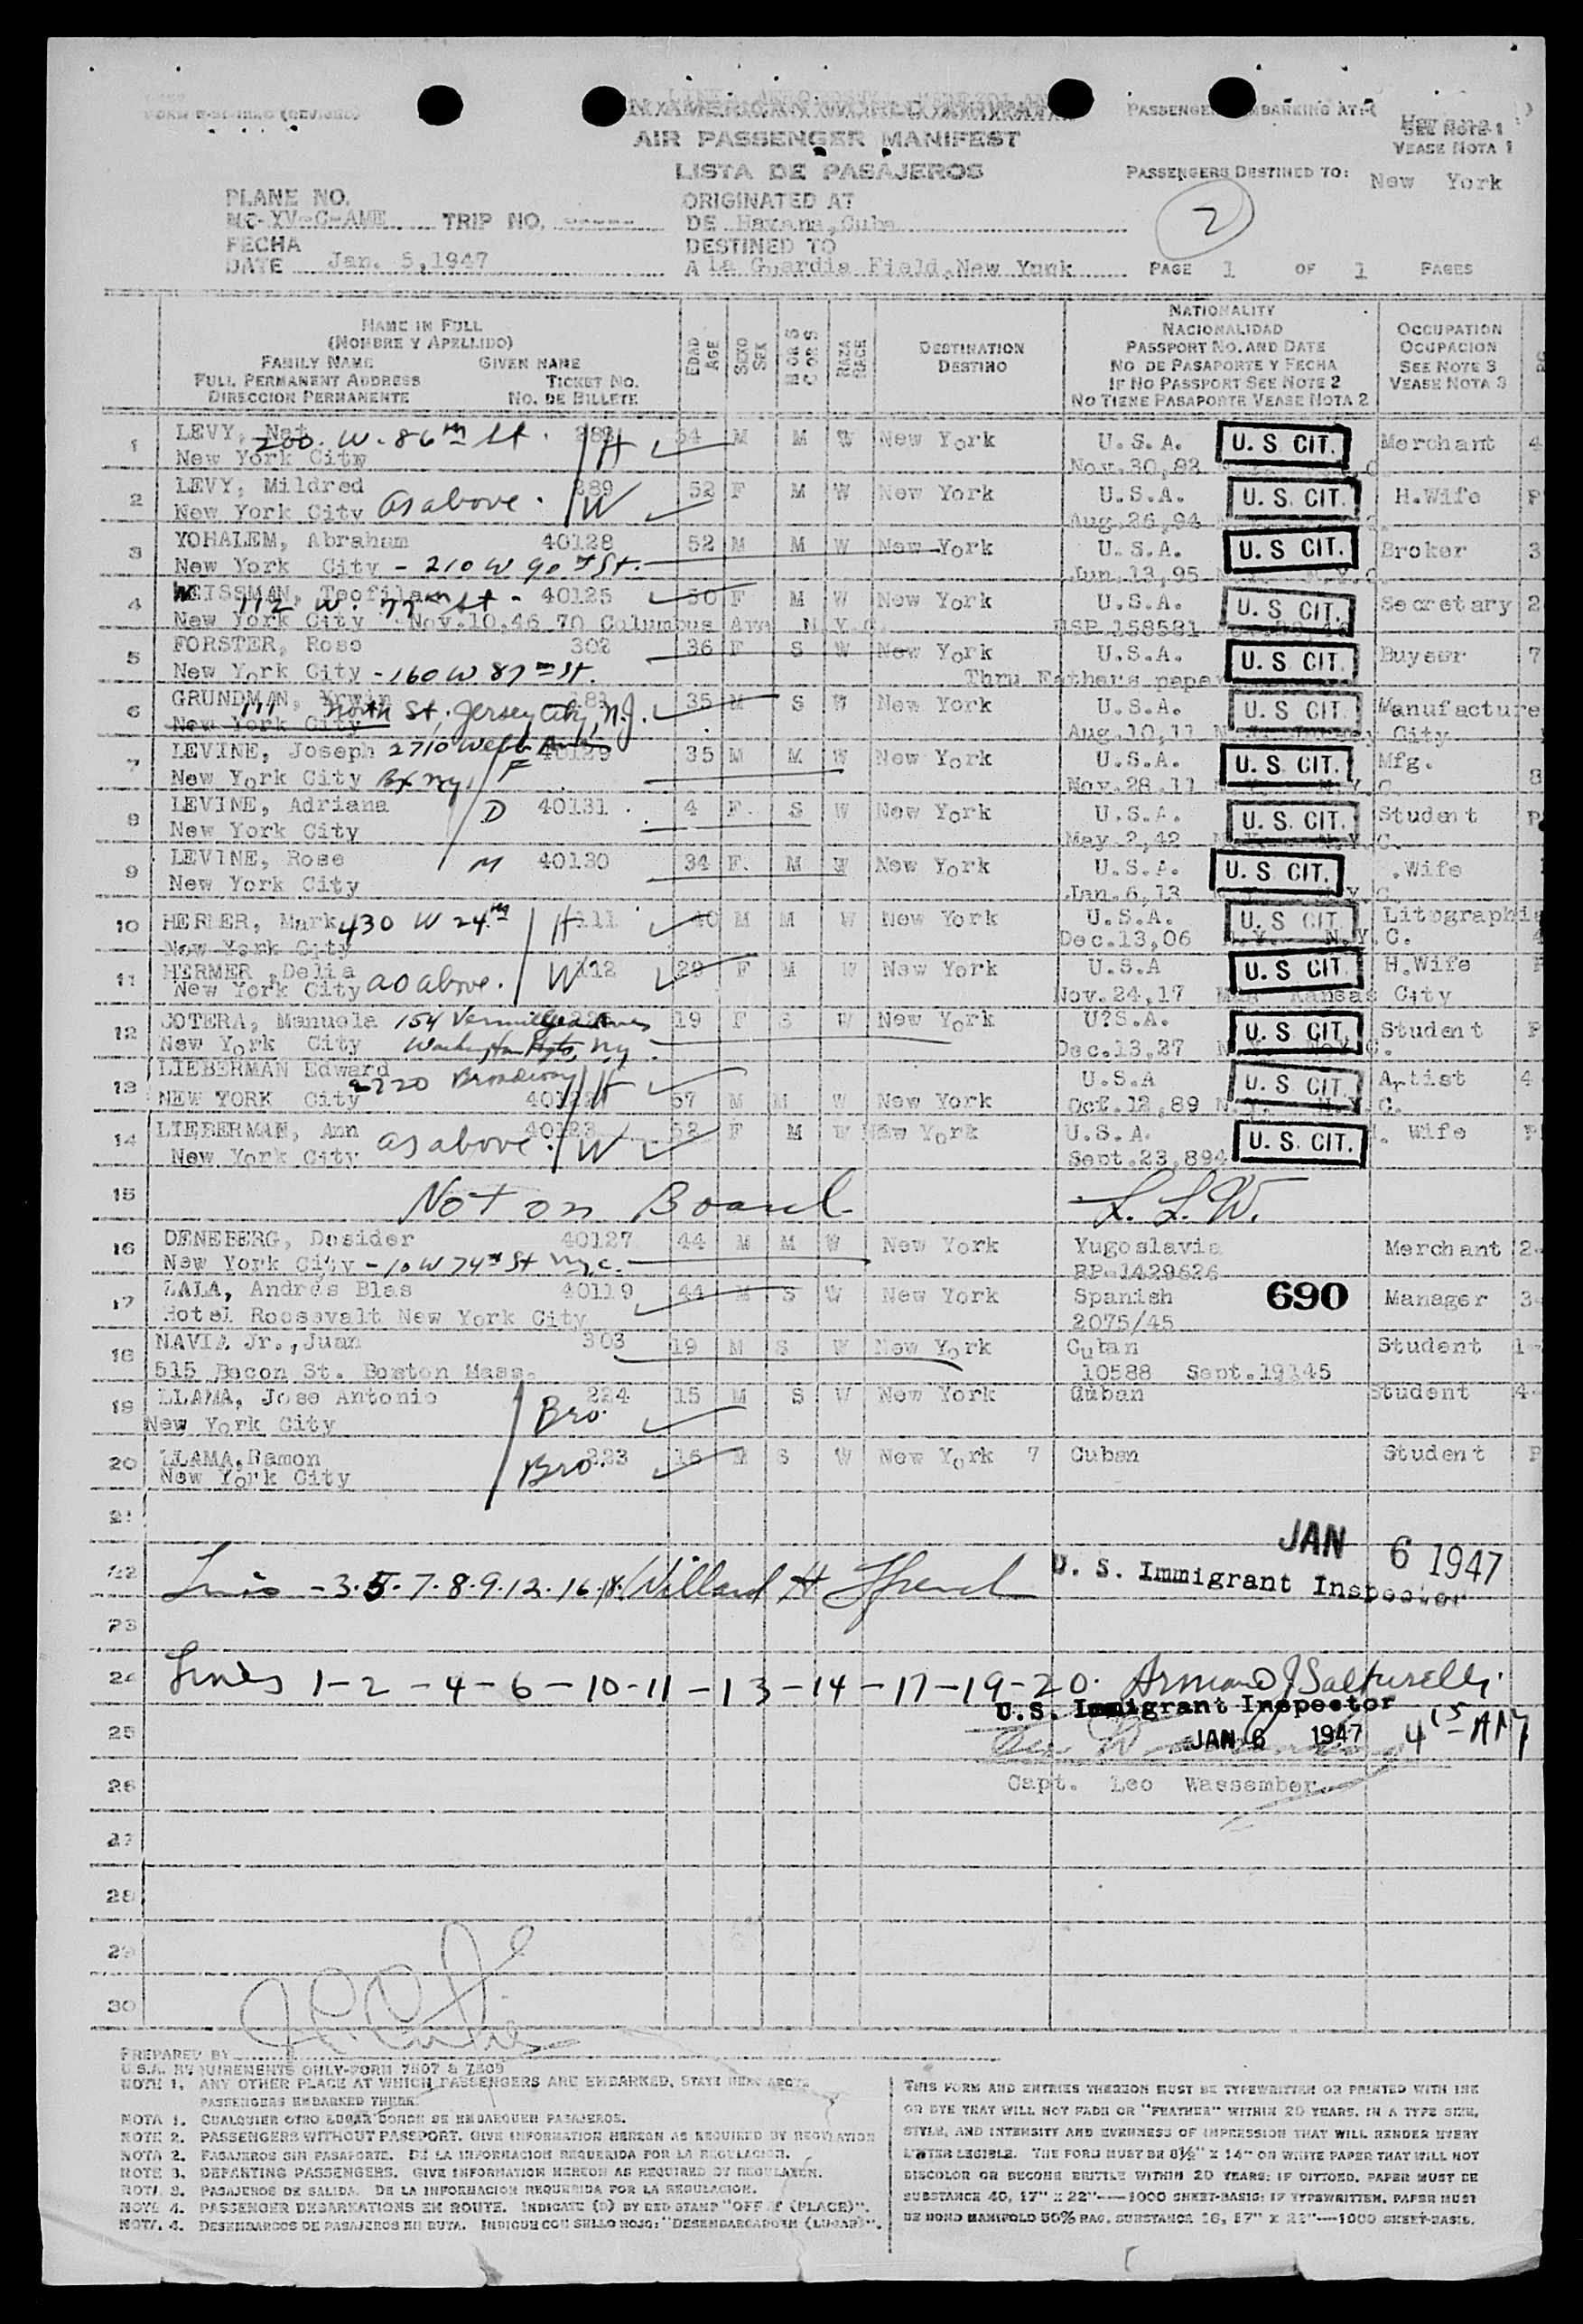 FORM
AN AMERICAN WORLD AIRWAYS
AIR PASSENGER MANIFEST
LISTA DE PASAJEROS
PASSENGERS EMBARKING AT:
Havana
SEE NOTE 1
VEASE NOTA 1
PASSENGERS DESTINED TO: New York
2
PLANE NO.
NC-XV-C-AME TRIP NO. -----
FECHA
DATE Jan. 5,1947
ORIGINATED AT
DE Havana,Cuba
DESTINED TO
A La Guardia Field,New Yunk
PAGE 1 OF 1 PAGES
NAME IN FULL
(NOMBRE Y APELLIDO)
FAMILY NAME GIVEN NAME
FULL PERMANENT ADDRESS TICKET NO.
DIRECCION PERMANENTE NO. DE BILLETE
EDAD AGE
SEXO SEX
M OR S
C O S
RAZA RACE
DESTINATION
DESTINO
NATIONALITY
NACIONALIDAD
PASSPORT NO. AND DATE
NO DE PASAPORTE Y FECHA
IF NO PASSPORT SEE NOTE 2
NO TIENE PASAPORTE VEASE NOTA 2
OCCUPATION
OCUPACION
SEE NOTE 3
VEASE NOTA 3
1 LEVY, Nat 288 H 54 M M W New York U.S.A. U. S CIT. Merchant 4
200. W. 86th St.
New York City Nov.30,92
2 LEVY, Mildred 289 W 52 F M W New York U.S.A. U. S. CIT. H.Wife P
New York City as above. Aug.26,94
3 YOHALEM, Abraham 40128 52 M M W New York U.S.A. U. S CIT. Broker 3
New York City - 210 W 90th St. Jun.13,95 N.Y. N.Y.C.
4 WEISSMAN, Teofila 40125 50 F M W New York U.S.A. U. S CIT. Secretary 2
112 W. 77th St -
New York City Nov.10,46 70 Columbus Ave N.Y.C. 158581
5 FORSTER, Rose 302 36 F S W New York U.S.A. U. S CIT. Buyeer 7
New York City - 160 W 87th St. Thru Fathers paper
6 GRUNDMAN, Yrwin 181 35 M S W New York U.S.A. U. S CIT. Manufacture
111 North St, Jersey City, N.J.
New York City Aug.10,11 N.J. Jersey City
7 LEVINE, Joseph 2710 Webb Ave 40129 35 M M W New York U.S.A. U. S. CIT. Mfg. 8
New York City Bx NY F Nov.28,11 N.Y. N.Y.C.
8 LEVINE, Adriana D 40131 4 F. S W New York U.S.A. U. S. CIT. Student P
New York City May 2,42 N.Y. N.Y.C.
9 LEVINE, Rose M 40130 34 F. M W New York U.S.A. U. S CIT. .Wife
New York City Jan.6,13 N.Y. N.Y.C.
10 HERMER, Mark 430 W 24th H 111 40 M M W New York U.S.A. U. S CIT Litographis
New York City Dec.13,06 N.Y. N.Y.C. 4
11 HERMER ,Delia W 112 29 F M W New York U.S.A U. S CIT. H.Wife
New York City as above. Nov.24,17 Kansas City
12 COTERA, Manuela 154 Vermilyea Ave 19 F S W New York U?S.A. U. S CIT. Student P
New York City Washington Hgts, NY Dec.13,27
13 LIEBERMAN Edward 2720 Broadway H U.S.A U. S CIT. Artist 4
NEW YORK City 57 M M W New York Oct.12,89 N.Y. N.Y.C.
14 LIEBERMAN, Ann 40123 W 52 F M W New York U.S.A. U. S. CIT. H. Wife P
New York City as above. Sept.23,894
15 Not on Board L. L. W.
16 DENEBERG, Desider 40127 44 M M W New York Yugoslavia Merchant 2-
New York City - 10 W 74th St NY.C. RP-1429626
17 ZALA, Andres Blas 40119 44 M S W New York Spanish 690 Manager 3-
Hotel Roosevalt New York City 2075/45
18 NAVIA Jr.,Juan 303 19 M S W New York Cuban Student 1-
515 Becon St. Boston Mass. 10588 Sept.19145
19 LLAMA, Jose Antonio 224 15 M S W New York Cuban Student 4-
New York City Bro.
20 LLAMA,Ramon 223 16 M S W New York 7 Cuban Student P
New York City Bro.
21
JAN 6 1947
22 Lines - 3.5.7.8.9.12.16.18. Willard H U. S. Immigrant Inspector
23
24 Lines 1-2-4-6-10-11-13-14-17-19-20. Armand J Salturelli
U.S. Immigrant Inspector
25 JAN 6 1947 4 15 AM
26 Capt. Leo Wassember
27
28
29
30
PREPARED BY
U.S.A. REQUIREMENTS ONLY-FORM 7507 & 7509
NOTE 1. ANY OTHER PLACE AT WHICH PASSENGERS ARE EMBARKED, STATE HERE ABOVE
PASSENGERS EMBARKED THERE.
NOTA 1. CUALQUIER OTRO LUGAR DONDE SE EMBARQUEN PASAJEROS.
NOTE 2. PASSENGERS WITHOUT PASSPORT. GIVE INFORMATION HEREON AS REQUIRED BY REGULATION
NOTA 2. PASAJEROS SIN PASAPORTE. DE LA INFORMACION REQUERIDA POR LA REGULACION.
NOTE 3. DEPARTING PASSENGERS. GIVE INFORMATION HEREON AS REQUIRED BY REGULATION.
NOTA 3. PASAJEROS DE SALIDA. DE LA INFORMACION REQUERIDA POR LA REGULACION.
NOTE 4. PASSENGER DEBARKATIONS EN ROUTE. INDICATE (D) BY RED STAMP "OFF AT (PLACE)".
NOTA 4. DESEMBARCOS DE PASAJEROS EN RUTA. INDIQUE CON SELLO ROJO: "DESEMBARCADO EN (LUGAR)".
THIS FORM AND ENTRIES THEREON MUST BE TYPEWRITTEN OR PRINTED WITH INK
OR DYE THAT WILL NOT FADE OR "FEATHER" WITHIN 20 YEARS, IN A TYPE SIZE,
STYLE, AND INTENSITY AND EVENNESS OF IMPRESSION THAT WILL RENDER EVERY
LETTER LEGIBLE. THE FORM MUST BE 8½" X 14" ON WHITE PAPER THAT WILL NOT
DISCOLOR OR BECOME BRITTLE WITHIN 20 YEARS: IF DITTOED, PAPER MUST BE
SUBSTANCE 40, 17" X 22"--1000 SHEET-BASIS: IF TYPEWRITTEN, PAPER MUST
BE BOND MANIFOLD 50% RAG, SUBSTANCE 16, 17" X 22"--1000 SHEET-BASIS.